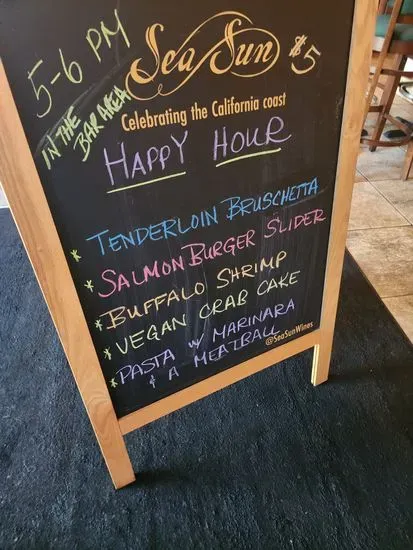 5-6 PM
IN THE
BAR AREA
Sea Sun
$5
Celebrating the California coast
HAPPY HOUR
* TENDERLOIN BRUSCHETTA
* SALMON BURGER SLIDER
* BUFFALO SHRIMP
* VEGAN CRAB CAKE
* PASTA w/ MARINARA
& A MEATBALL
@SeaSunWines